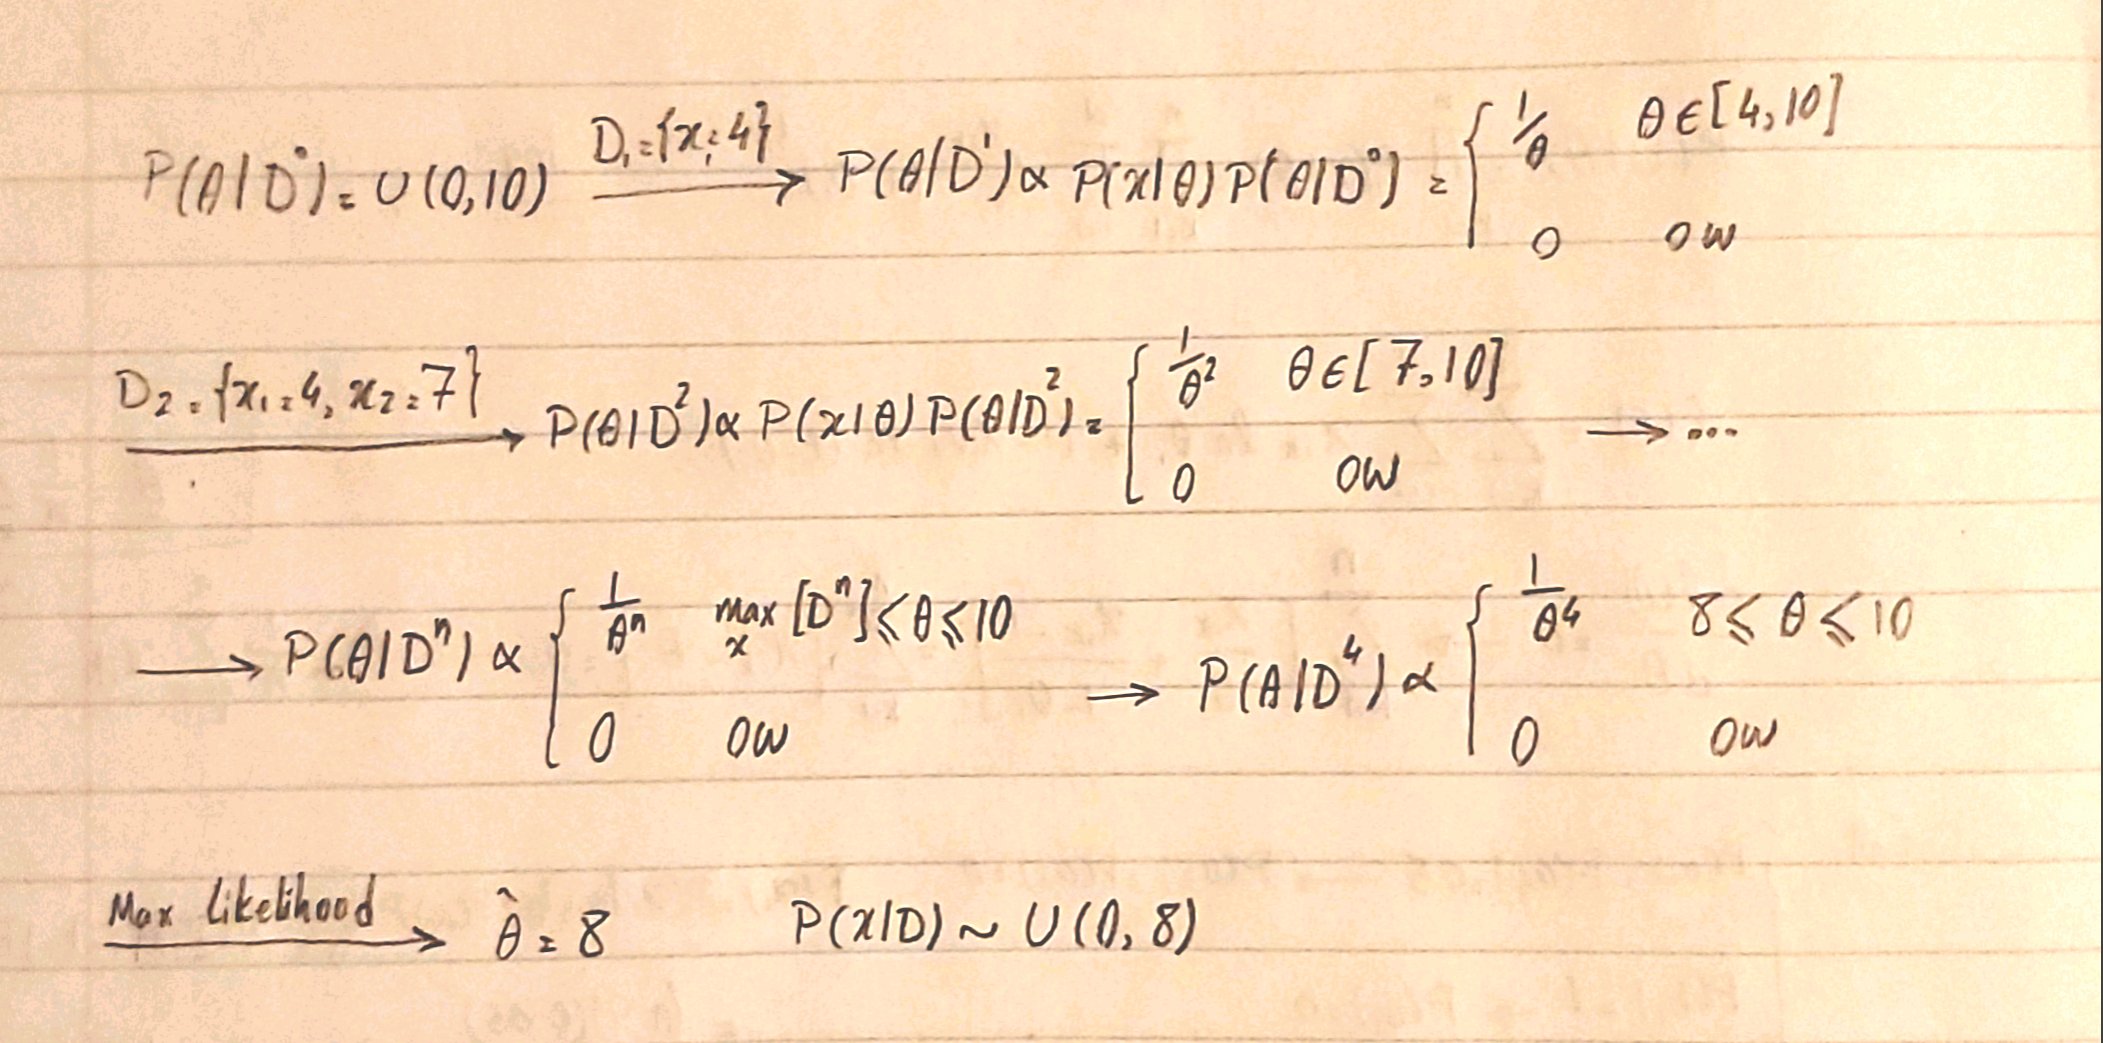 P(θ|D⁰) = U(0,10) D₁ = {x₁ = 4} → P(θ|D¹) ∝ P(x|θ) P(θ|D⁰) = { 1/θ θ ∈ [4,10] ; 0 ow
D₂ = {x₁ = 4, x₂ = 7} → P(θ|D²) ∝ P(x|θ) P(θ|D²) = { 1/θ² θ ∈ [7,10] ; 0 ow → ...
→ P(θ|Dⁿ) ∝ { 1/θⁿ max_x [Dⁿ] ⩽ θ ⩽ 10 ; 0 ow → P(θ|D⁴) ∝ { 1/θ⁴ 8 ⩽ θ ⩽ 10 ; 0 ow
Max Likelihood → θ̂ = 8 P(x|D) ~ U(0,8)